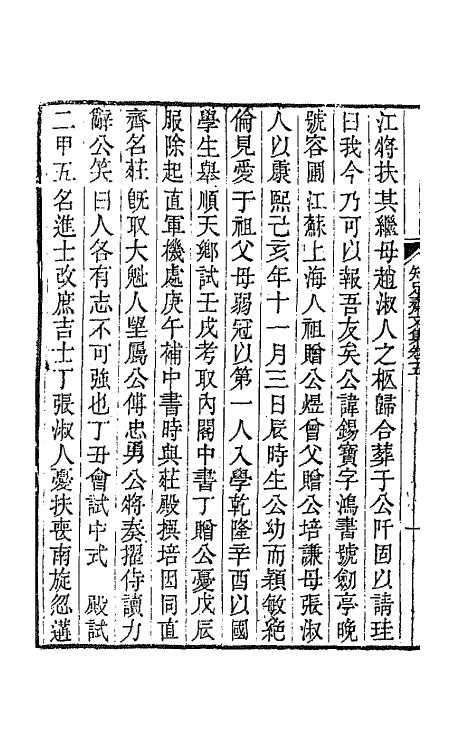 江將扶其繼母趙淑人之柩歸合葬于公阡固以請珪
曰我今乃可以報吾友矣公諱錫寶字鴻書號劒亭晚
號容圃江蘇上海人祖贈公煜曾父贈公培謙母張淑
人以康熙己亥年十一月三日辰時生公幼而穎敏絕
倫見愛于祖父母弱冠以第一人入學乾隆辛酉以國
學生舉順天鄉試壬戌考取內閣中書丁贈公憂戊辰
服除起直軍機處庚午補中書時與莊殿撰培因同直
齊名莊旣取大魁人望屬公傅忠勇公將奏擢侍讀力
辭公笑曰人各有志不可強也丁丑會試中式　殿試
二甲五名進士改庶吉士丁張淑人憂扶喪南旋忽遘
知足齋文集卷五